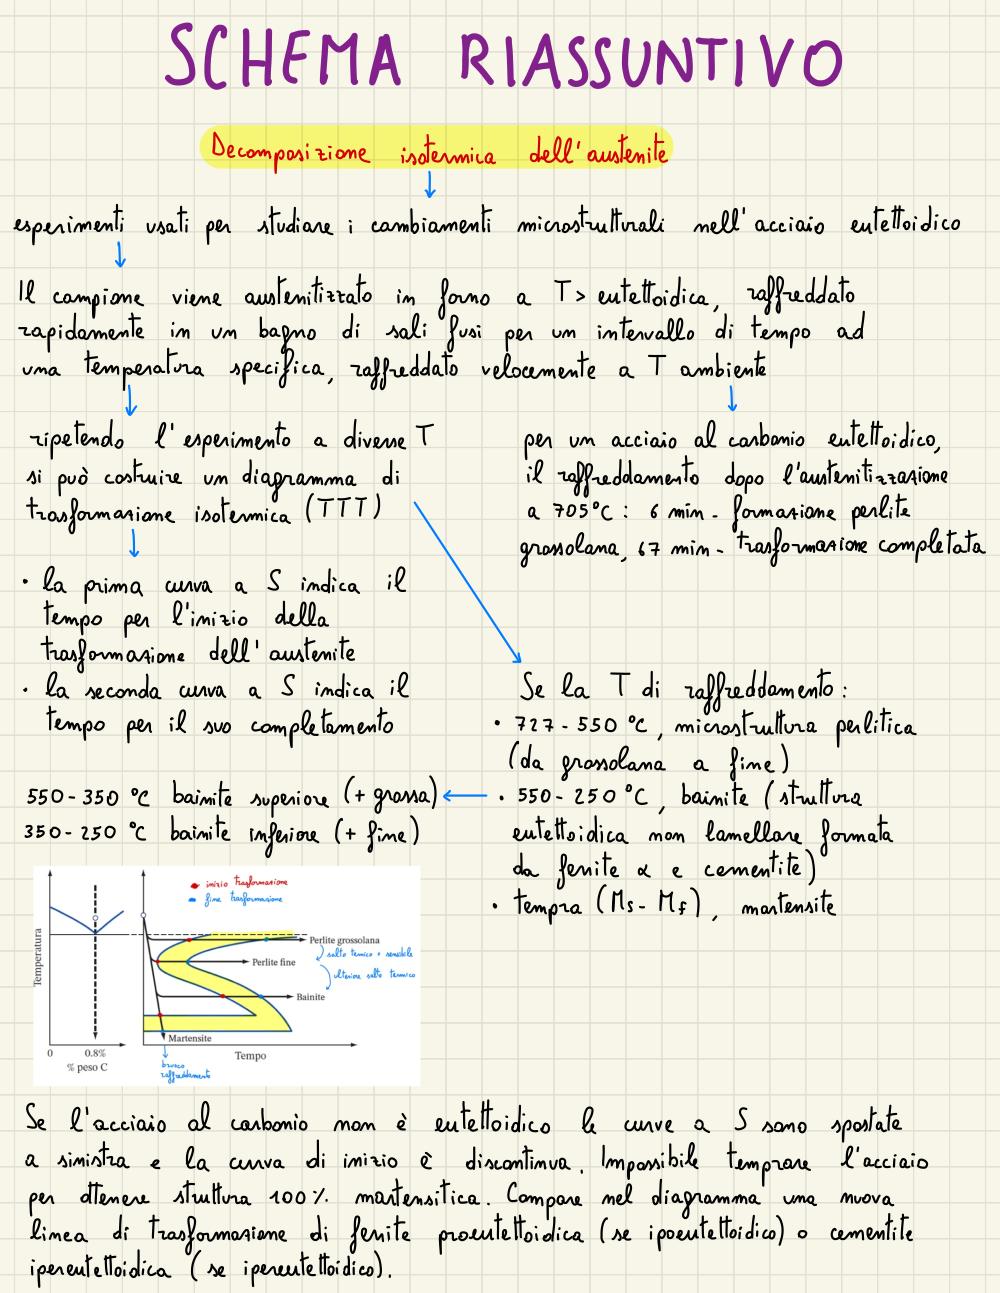 SCHEMA RIASSUNTIVO
Decomposizione isotermica dell'austenite
esperimenti usati per studiare i cambiamenti microstrutturali nell'acciaio eutettoidico
Il campione viene austenitizzato in forno a T> eutettoidica, raffreddato
rapidamente in un bagno di sali fusi per un intervallo di tempo ad
una temperatura specifica, raffreddato velocemente a T ambiente
ripetendo l'esperimento a diverse T
si può costruire un diagramma di
trasformazione isotermica (TTT)
per un acciaio al carbonio eutettoidico,
il raffreddamento dopo l'austenitizzazione
a 705°C : 6 min - formazione perlite
grossolana, 67 min - trasformazione completata
• la prima curva a S indica il
tempo per l'inizio della
trasformazione dell'austenite
• la seconda curva a S indica il
tempo per il suo completamento
Se la T di raffreddamento :
• 727-550 °C, microstruttura perlitica
(da grossolana a fine)
• 550-250 °C, bainite (struttura
eutettoidica non lamellare formata
da ferrite α e cementite)
• tempra (Ms - Mf), martensite
550-350 °C bainite superiore (+ grossa)
350-250 °C bainite inferiore (+ fine)
inizio trasformazione
fine trasformazione
Temperatura
Perlite grossolana
salto termico + sensibile
Perlite fine
ulteriore salto termico
Bainite
Martensite
0
0.8%
% peso C
Tempo
brusco
raffreddamento
Se l'acciaio al carbonio non è eutettoidico le curve a S sono spostate
a sinistra e la curva di inizio è discontinua. Impossibile temprare l'acciaio
per ottenere struttura 100% martensitica. Compare nel diagramma una nuova
linea di trasformazione di ferrite proeutettoidica (se ipoeutettoidico) o cementite
ipereutettoidica (se ipereutettoidico).